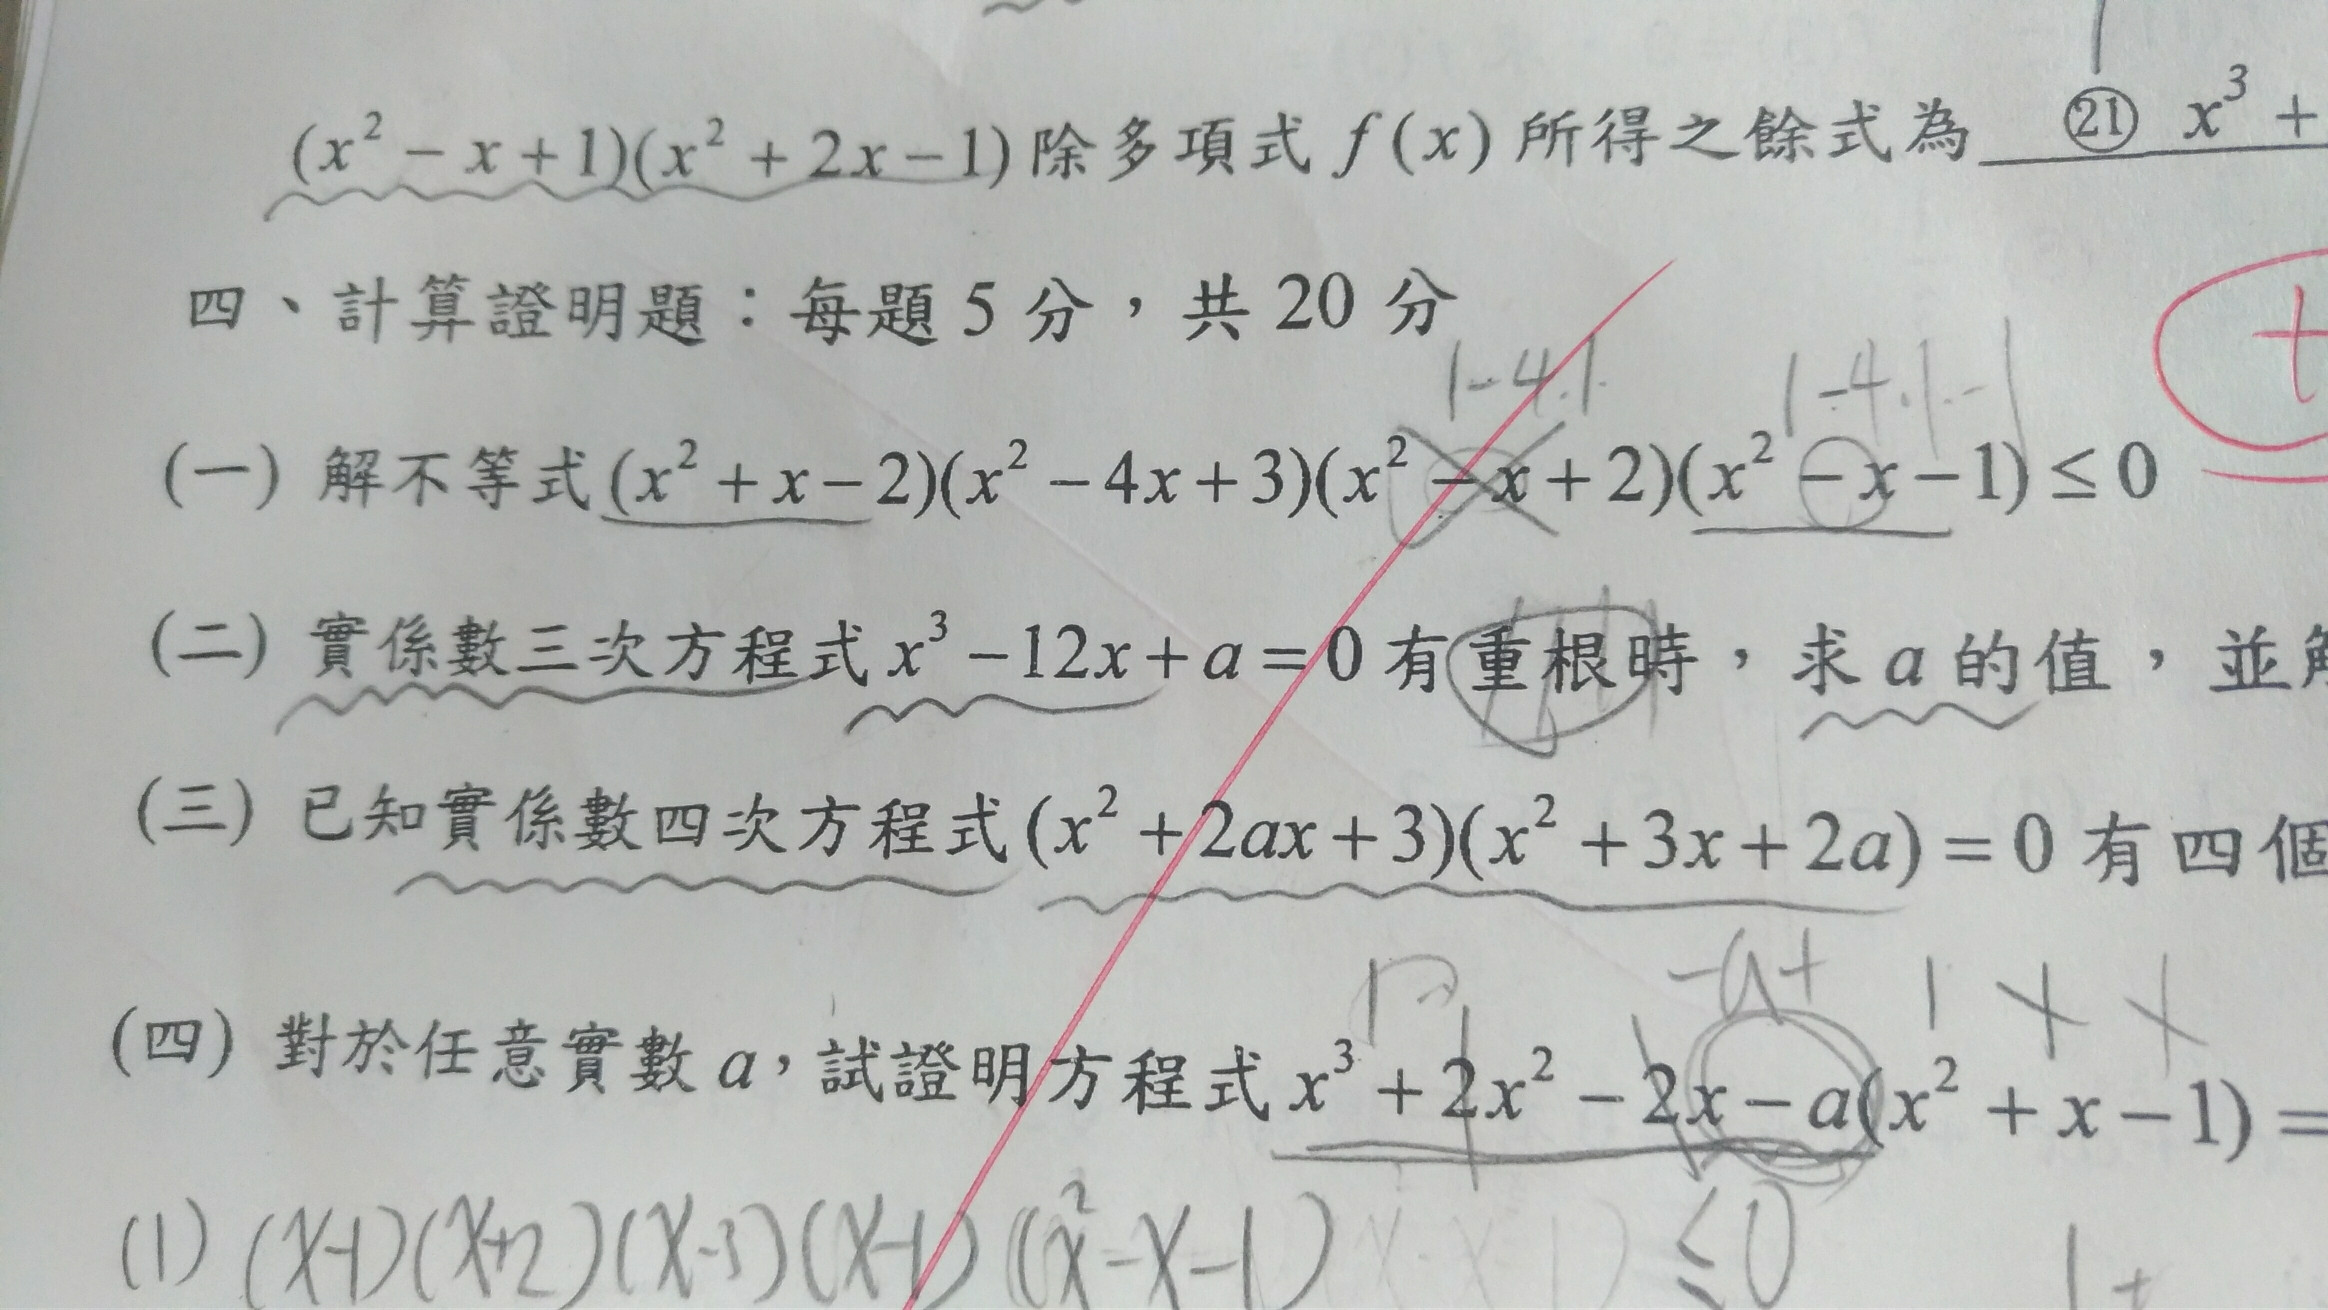 (x² − x + 1)(x² + 2x − 1) 除多項式 f(x) 所得之餘式為 ㉑ x³ +
四、計算證明題：每題 5 分，共 20 分
1-4.1. 1-4.1.-1
(一) 解不等式 (x² + x − 2)(x² − 4x + 3)(x² − x + 2)(x² − x − 1) ≤ 0
+
(二) 實係數三次方程式 x³ − 12x + a = 0 有重根時，求 a 的值，並
(三) 已知實係數四次方程式 (x² + 2ax + 3)(x² + 3x + 2a) = 0 有四個
(四) 對於任意實數 a，試證明方程式 x³ + 2x² − 2x − a(x² + x − 1) =
(1) (x-1)(x+2)(x-3)(x-1)(x²-x-1) ≤0
1+